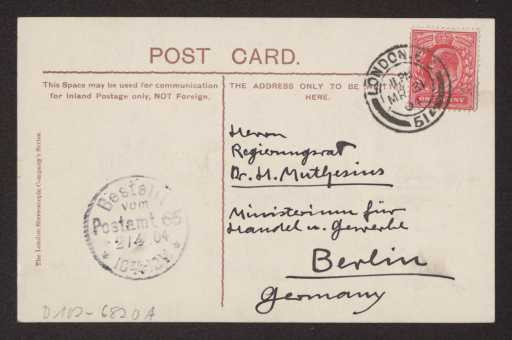 POST CARD.
This Space may be used for communication
for Inland Postage only, NOT Foreign.
THE ADDRESS ONLY TO BE
HERE.
LONDON
MR
51
ONE PENNY
Herrn
Regierungsrat
Dr. H. Muthesius
Ministerium für
Handel u. Gewerbe
Berlin
Germany
Bestellt
vom
Postamt 65
2/4 04
The London Stereoscopic Company's Series.
D 102-6820A